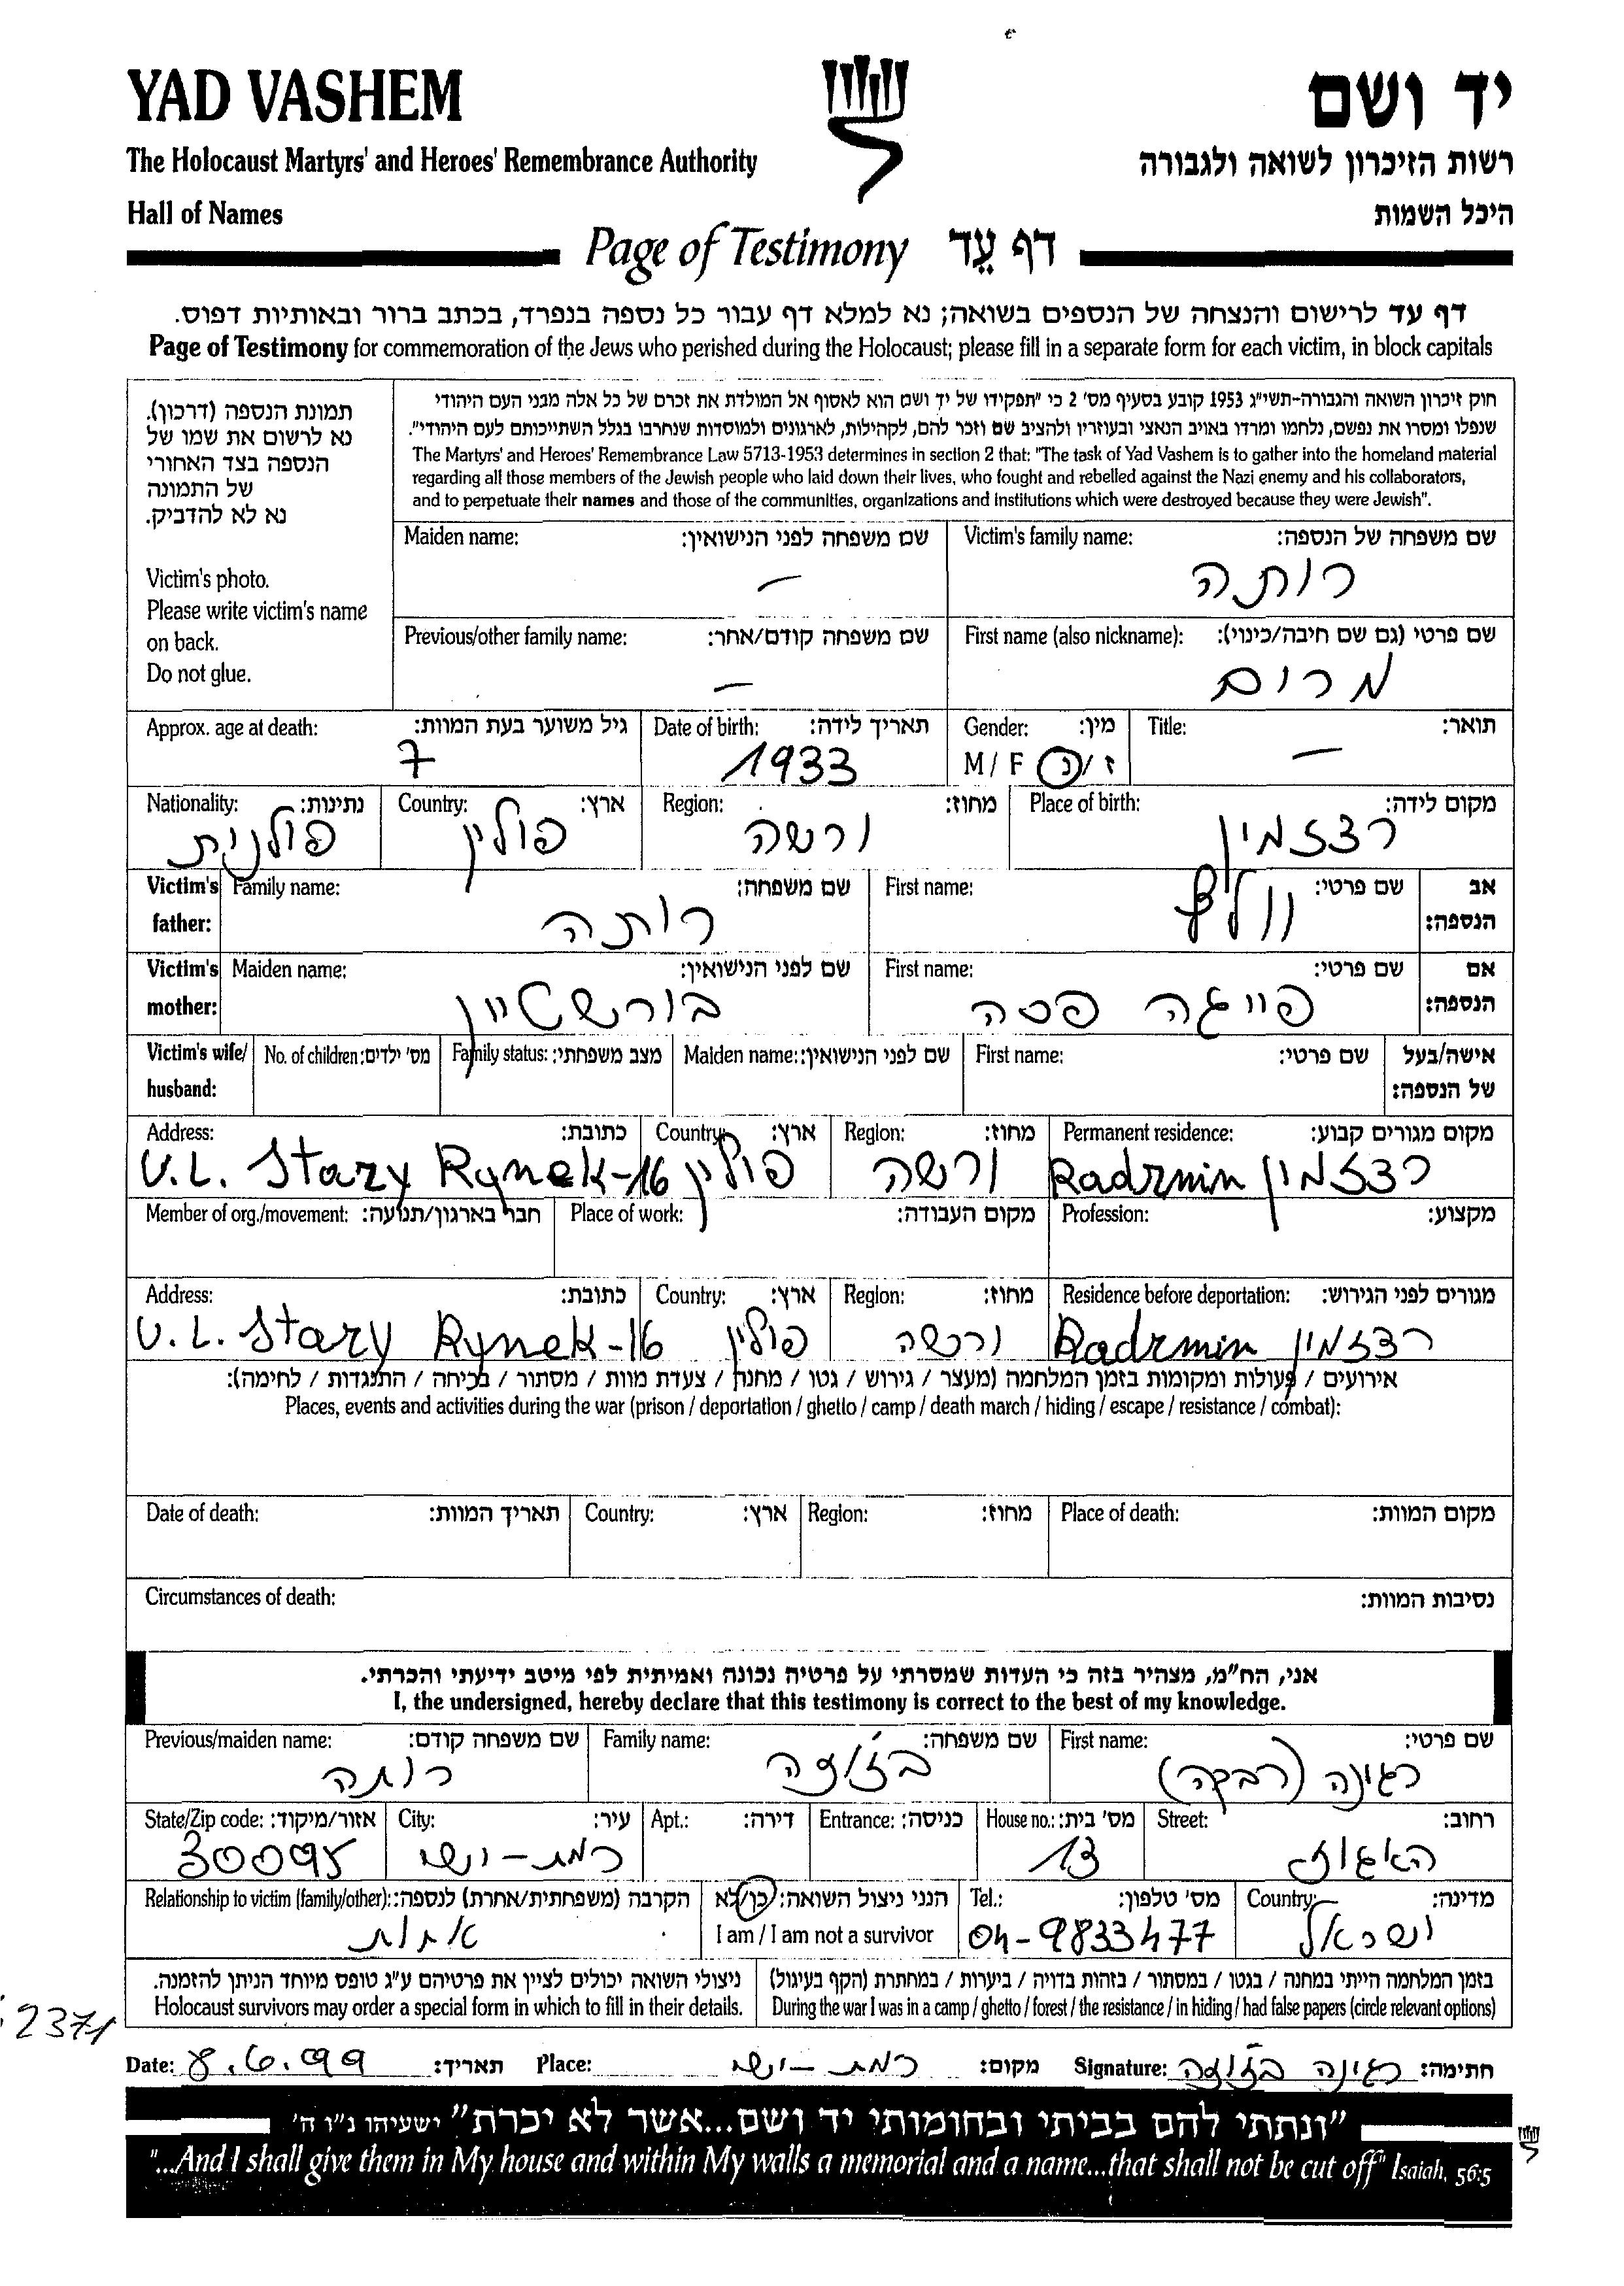 YAD VASHEM
יד ושם
The Holocaust Martyrs' and Heroes' Remembrance Authority
רשות הזיכרון לשואה ולגבורה
Hall of Names
היכל השמות
Page of Testimony דף עֵד
דף עד לרישום והנצחה של הנספים בשואה; נא למלא דף עבור כל נספה בנפרד, בכתב ברור ובאותיות דפוס.
Page of Testimony for commemoration of the Jews who perished during the Holocaust; please fill in a separate form for each victim, in block capitals
תמונת הנספה (דרכון).
נא לרשום את שמו של
הנספה בצד האחורי
של התמונה
נא לא להדביק.
Victim's photo.
Please write victim's name
on back.
Do not glue.
חוק זיכרון השואה והגבורה-תשי"ג 1953 קובע בסעיף מס' 2 כי "תפקידו של יד ושם הוא לאסוף אל המולדת את זכרם של כל אלה מבני העם היהודי
שנפלו ומסרו את נפשם, נלחמו ומרדו באויב הנאצי ובעוזריו ולהציב שם וזכר להם, לקהילות, לארגונים ולמוסדות שנחרבו בגלל השתייכותם לעם היהודי".
The Martyrs' and Heroes' Remembrance Law 5713-1953 determines in section 2 that: "The task of Yad Vashem is to gather into the homeland material
regarding all those members of the Jewish people who laid down their lives, who fought and rebelled against the Nazi enemy and his collaborators,
and to perpetuate their names and those of the communities, organizations and institutions which were destroyed because they were Jewish".
Victim's family name: שם משפחה של הנספה:
רותה
Maiden name: שם משפחה לפני הנישואין:
–
First name (also nickname): שם פרטי (גם שם חיבה/כינוי):
מרים
Previous/other family name: שם משפחה קודם/אחר:
–
Title: תואר:
–
Gender: מין:
M / F ז / נ
Date of birth: תאריך לידה:
1933
Approx. age at death: גיל משוער בעת המוות:
7
Place of birth: מקום לידה:
רצזמין
Region: מחוז:
ורשה
Country: ארץ:
פולין
Nationality: נתינות:
פולנית
Victim's father: אב הנספה:
First name: שם פרטי:
Family name: שם משפחה:
רותה
Victim's mother: אם הנספה:
First name: שם פרטי:
פייגה פסה
Maiden name: שם לפני הנישואין:
בורשטיין
Victim's wife/ husband: אישה/בעל של הנספה:
First name: שם פרטי:
Maiden name: שם לפני הנישואין:
Family status: מצב משפחתי:
No. of children: מס' ילדים:
Permanent residence: מקום מגורים קבוע:
רצזמין Radzmin
Region: מחוז:
ורשה
Country: ארץ:
פולין
Address: כתובת:
U.L. Stary Rynek-16
Profession: מקצוע:
Place of work: מקום העבודה:
Member of org./movement: חבר בארגון/תנועה:
Residence before deportation: מגורים לפני הגירוש:
רצזמין Radzmin
Region: מחוז:
ורשה
Country: ארץ:
פולין
Address: כתובת:
U.L. Stary Rynek-16
אירועים / פעולות ומקומות בזמן המלחמה (מעצר / גירוש / גטו / מחנה / צעדת מוות / מסתור / בריחה / התנגדות / לחימה):
Places, events and activities during the war (prison / deportation / ghetto / camp / death march / hiding / escape / resistance / combat):
Place of death: מקום המוות:
Region: מחוז:
Country: ארץ:
Date of death: תאריך המוות:
Circumstances of death: נסיבות המוות:
אני, הח"מ, מצהיר בזה כי העדות שמסרתי על פרטיה נכונה ואמיתית לפי מיטב ידיעתי והכרתי.
I, the undersigned, hereby declare that this testimony is correct to the best of my knowledge.
First name: שם פרטי:
רגינה (רבקה)
Family name: שם משפחה:
Previous/maiden name: שם משפחה קודם:
רותה
Street: רחוב:
האגוז
House no.: מס' בית:
13
Entrance: כניסה:
Apt.: דירה:
City: עיר:
רמת-ישי
State/Zip code: אזור/מיקוד:
30095
Country: מדינה:
ישראל
Tel.: מס' טלפון:
04-9833477
הנני ניצול השואה: כן/לא
I am / I am not a survivor
Relationship to victim (family/other): הקרבה (משפחתית/אחרת) לנספה:
אחות
בזמן המלחמה הייתי במחנה / בגטו / במסתור / בזהות בדויה / ביערות / במחתרת (הקף בעיגול)
During the war I was in a camp / ghetto / forest / the resistance / in hiding / had false papers (circle relevant options)
ניצולי השואה יכולים לציין את פרטיהם ע"ג טופס מיוחד הניתן להזמנה.
Holocaust survivors may order a special form in which to fill in their details.
2371
Date: 8.6.99 תאריך: Place: רמת-ישי מקום: Signature: רגינה חתימה:
"ונתתי להם בביתי ובחומותי יד ושם...אשר לא יכרת" ישעיהו נ"ו ה'
"...And I shall give them in My house and within My walls a memorial and a name...that shall not be cut off" Isaiah, 56:5